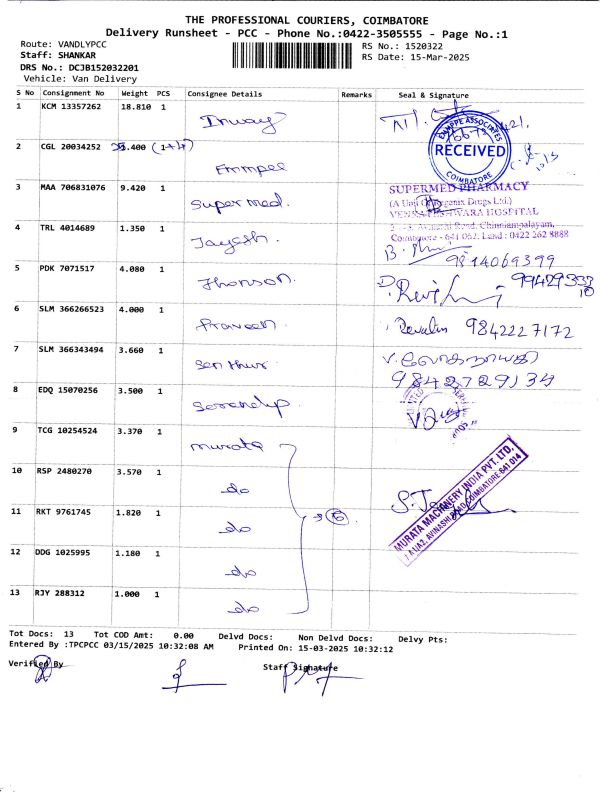 THE PROFESSIONAL COURIERS, COIMBATORE
Delivery Runsheet - PCC - Phone No.:0422-3505555 - Page No.:1
Route: VANDLYPCC
RS No.: 1520322
Staff: SHANKAR
RS Date: 15-Mar-2025
DRS No.: DCJB152032201
Vehicle: Van Delivery
S No Consignment No Weight PCS Consignee Details Remarks Seal & Signature
1 KCM 13357262 18.810 1 Inway
2 CGL 20034252 .400 (1+4) Emmpee
RECEIVED
COIMBATORE
3 MAA 706831076 9.420 1 Supermed.
SUPERMED PHARMACY
VENKATESHWARA HOSPITAL
Coimbatore - 641 062. Land : 0422 262 8888
4 TRL 4014689 1.350 1 Jayesh.
9814069399
5 PDK 7071517 4.080 1 Jhonson.
6 SLM 366266523 4.000 1 Praveen.
9842227172
7 SLM 366343494 3.660 1 Senthur.
9842729134
8 EDQ 15070256 3.500 1 Serendip
9 TCG 10254524 3.370 1 Murata
10 RSP 2480270 3.570 1 do
11 RKT 9761745 1.820 1 do
12 DDG 1025995 1.180 1 do
13 RJY 288312 1.000 1 do
MURATA MACHINERY INDIA PVT. LTD,
AVINASHI ROAD, COIMBATORE-641 014
Tot Docs: 13 Tot COD Amt: 0.00 Delvd Docs: Non Delvd Docs: Delvy Pts:
Entered By :TPCPCC 03/15/2025 10:32:08 AM Printed On: 15-03-2025 10:32:12
Verified By Staff Signature